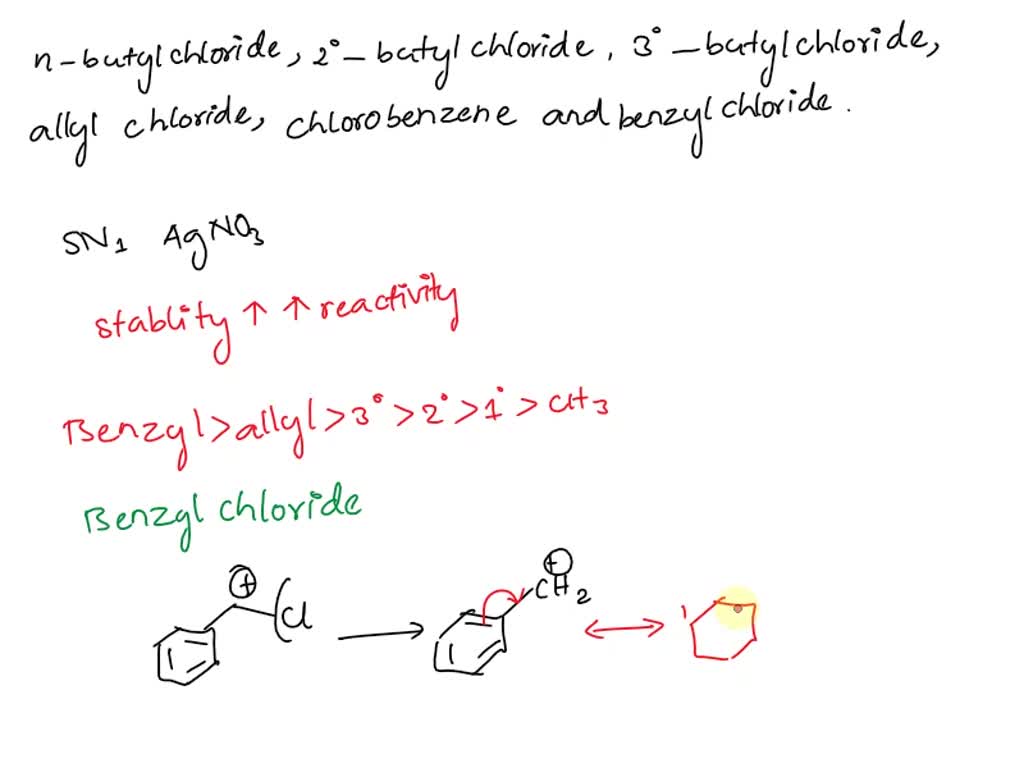 n-butylchloride, 2°-butylchloride, 3°-butylchloride,
allyl chloride, chlorobenzene and benzylchloride.
SN1 AgNO3
stablity ↑ ↑ reactivity
Benzyl > allyl > 3° > 2° > 1° > CH3
Benzyl chloride
+ Cl
+ CH2